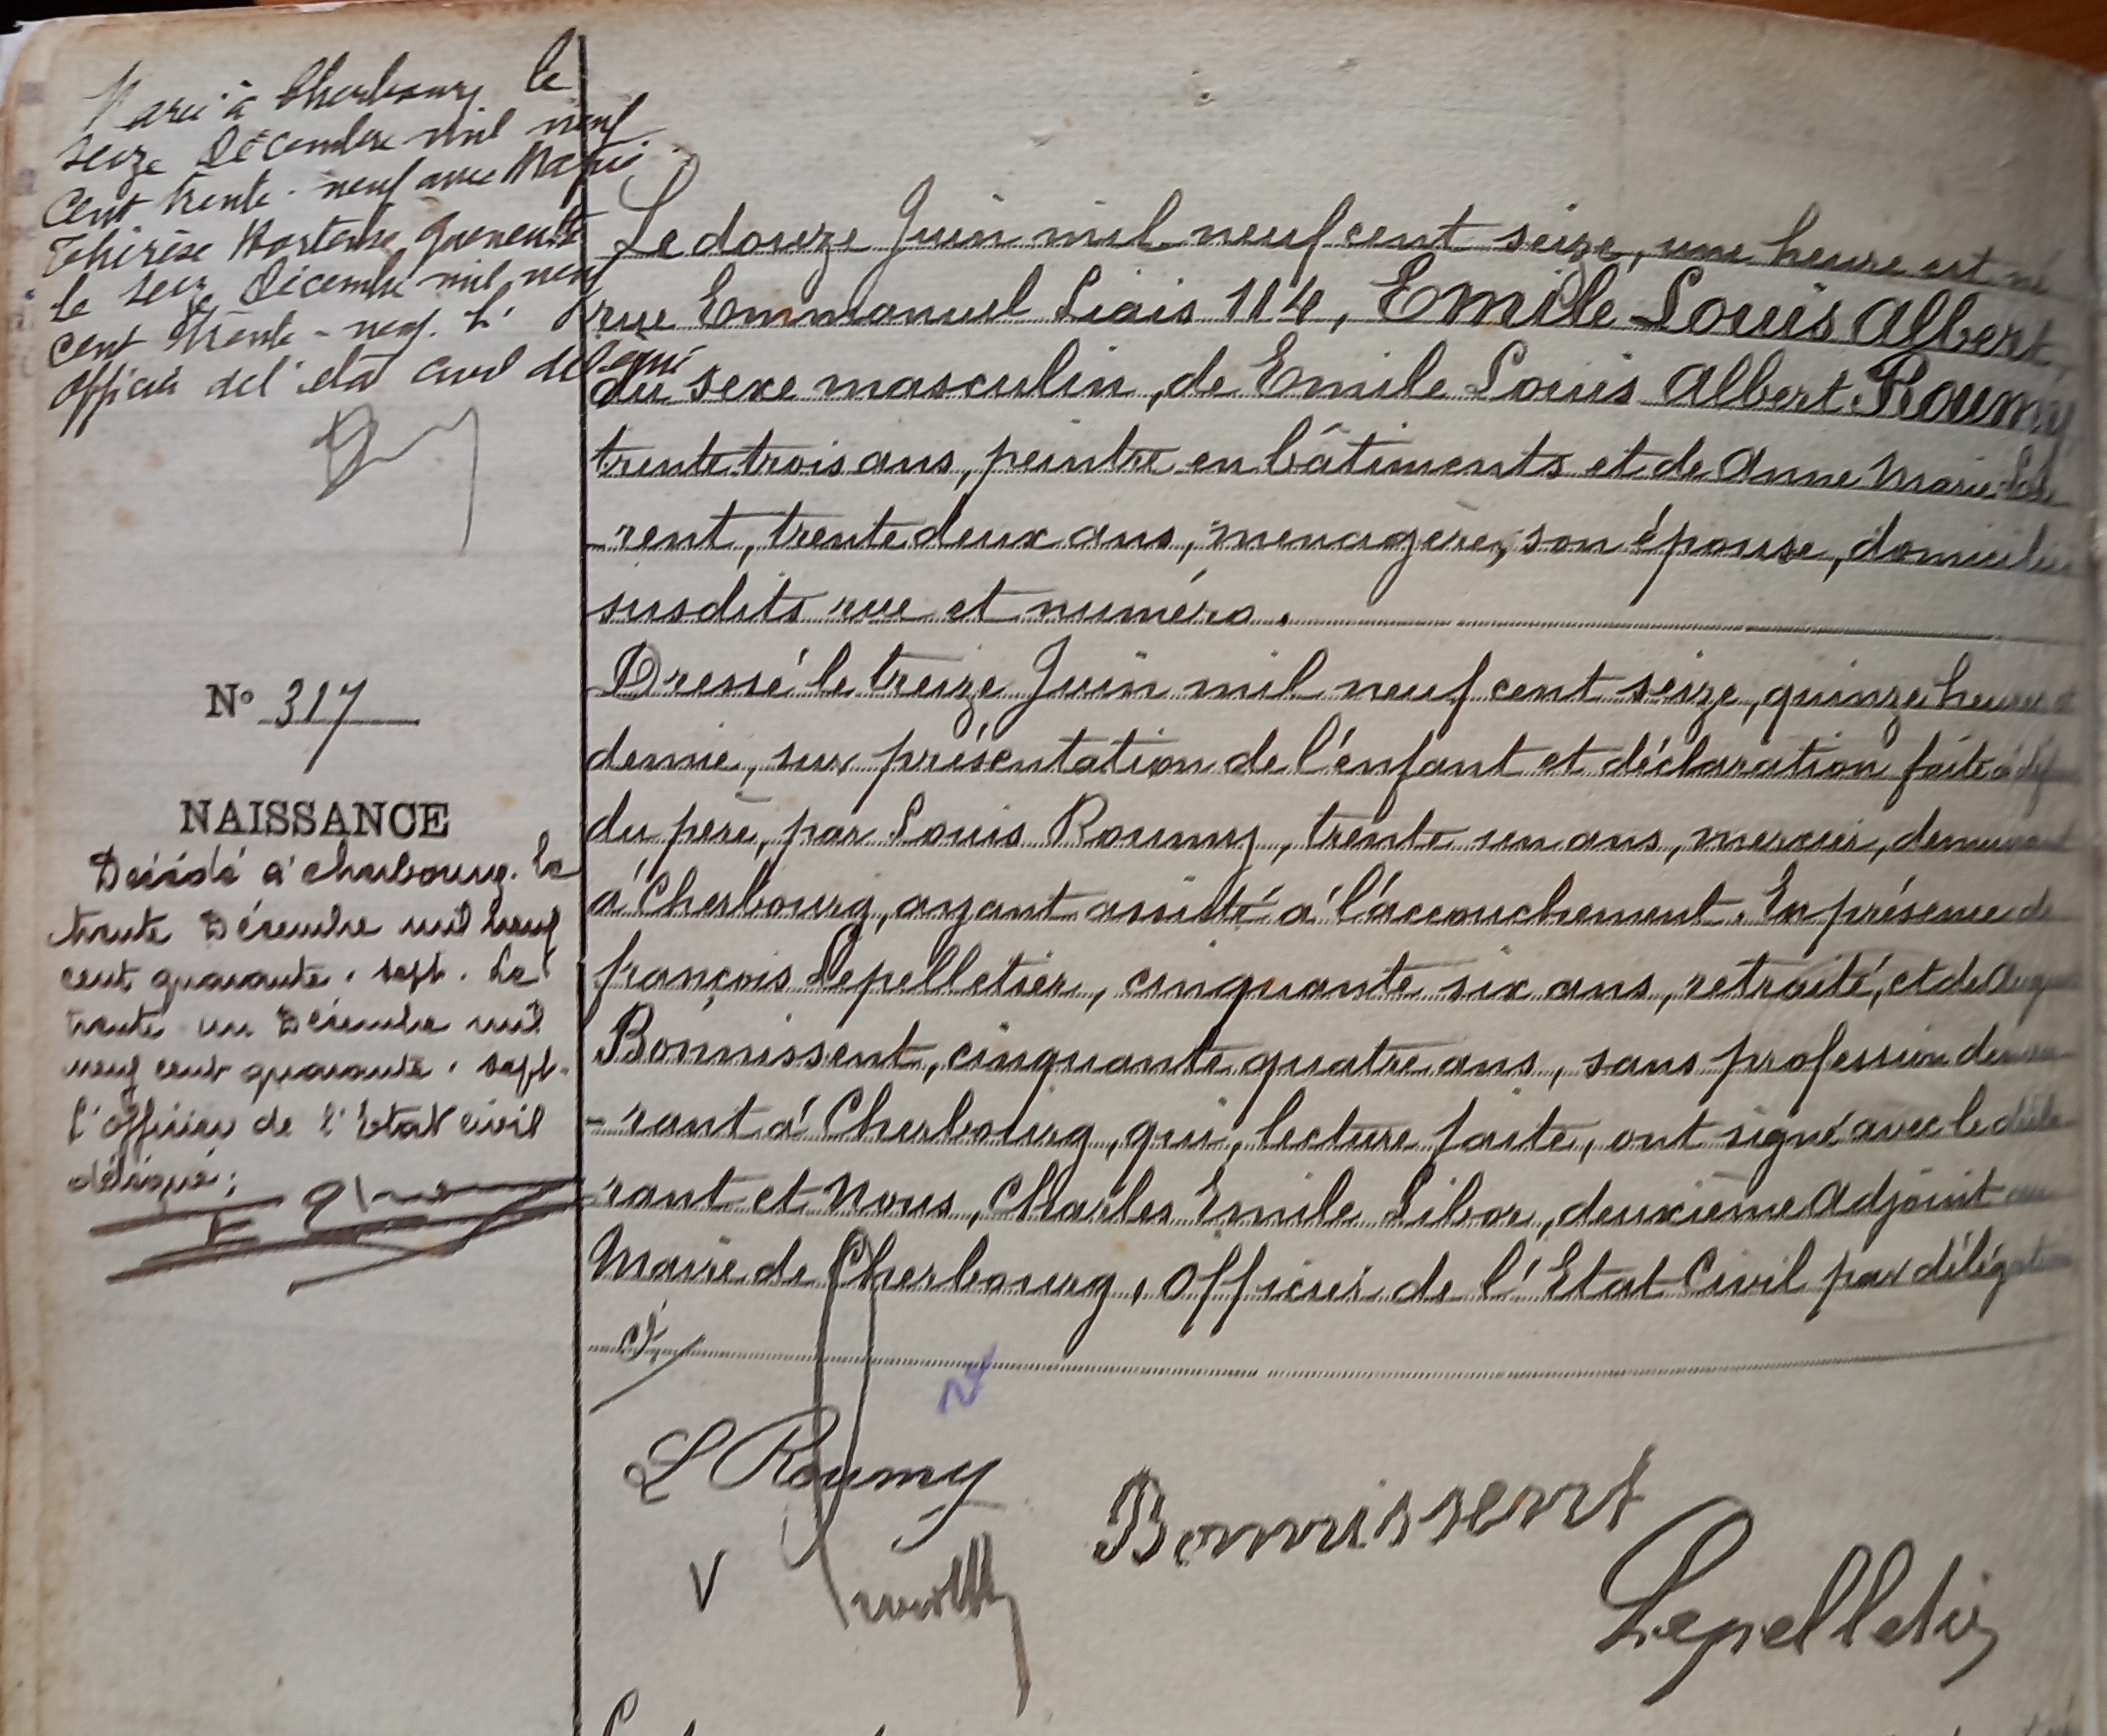 Marié à Cherbourg le
seize Décembre mil neuf
Cent trente-neuf avec Marie
Thérèse Hortense
le seize Décembre mil neuf
cent trente-neuf. L'
officier de l'état civil délégué
N° 317
NAISSANCE
Décédé à Cherbourg. le
trente Décembre mil neuf
cent quarante-sept. Le
trente un Décembre mil
neuf cent quarante-sept.
l'officier de l'Etat civil
délégué;
Le douze Juin mil neuf cent seize, une heure est né
rue Emmanuel Liais 114, Emile Louis Albert,
du sexe masculin, de Emile Louis Albert Roumy
trente trois ans, peintre en bâtiments et de Anne Marie
-rent, trente deux ans, menagère, son épouse, domiciliés
susdits rue et numéro.
Dressé le treize Juin mil neuf cent seize, quinze heures et
demie, sur présentation de l'enfant et déclaration faite à
du père, par Louis Roumy, trente un ans, mercier, demeurant
à Cherbourg, ayant assisté à l'accouchement. En présence de
François Lepelletier, cinquante six ans, retraité, et de
Bonnissent, cinquante quatre ans, sans profession demeu
-rant à Cherbourg, qui, lecture faite, ont signé avec le décla
rant et Nous, Charles Emile Libor, deuxième Adjoint au
Maire de Cherbourg, Officier de l'Etat Civil par délégation
L Roumy
Bonnissent
Lepelletier